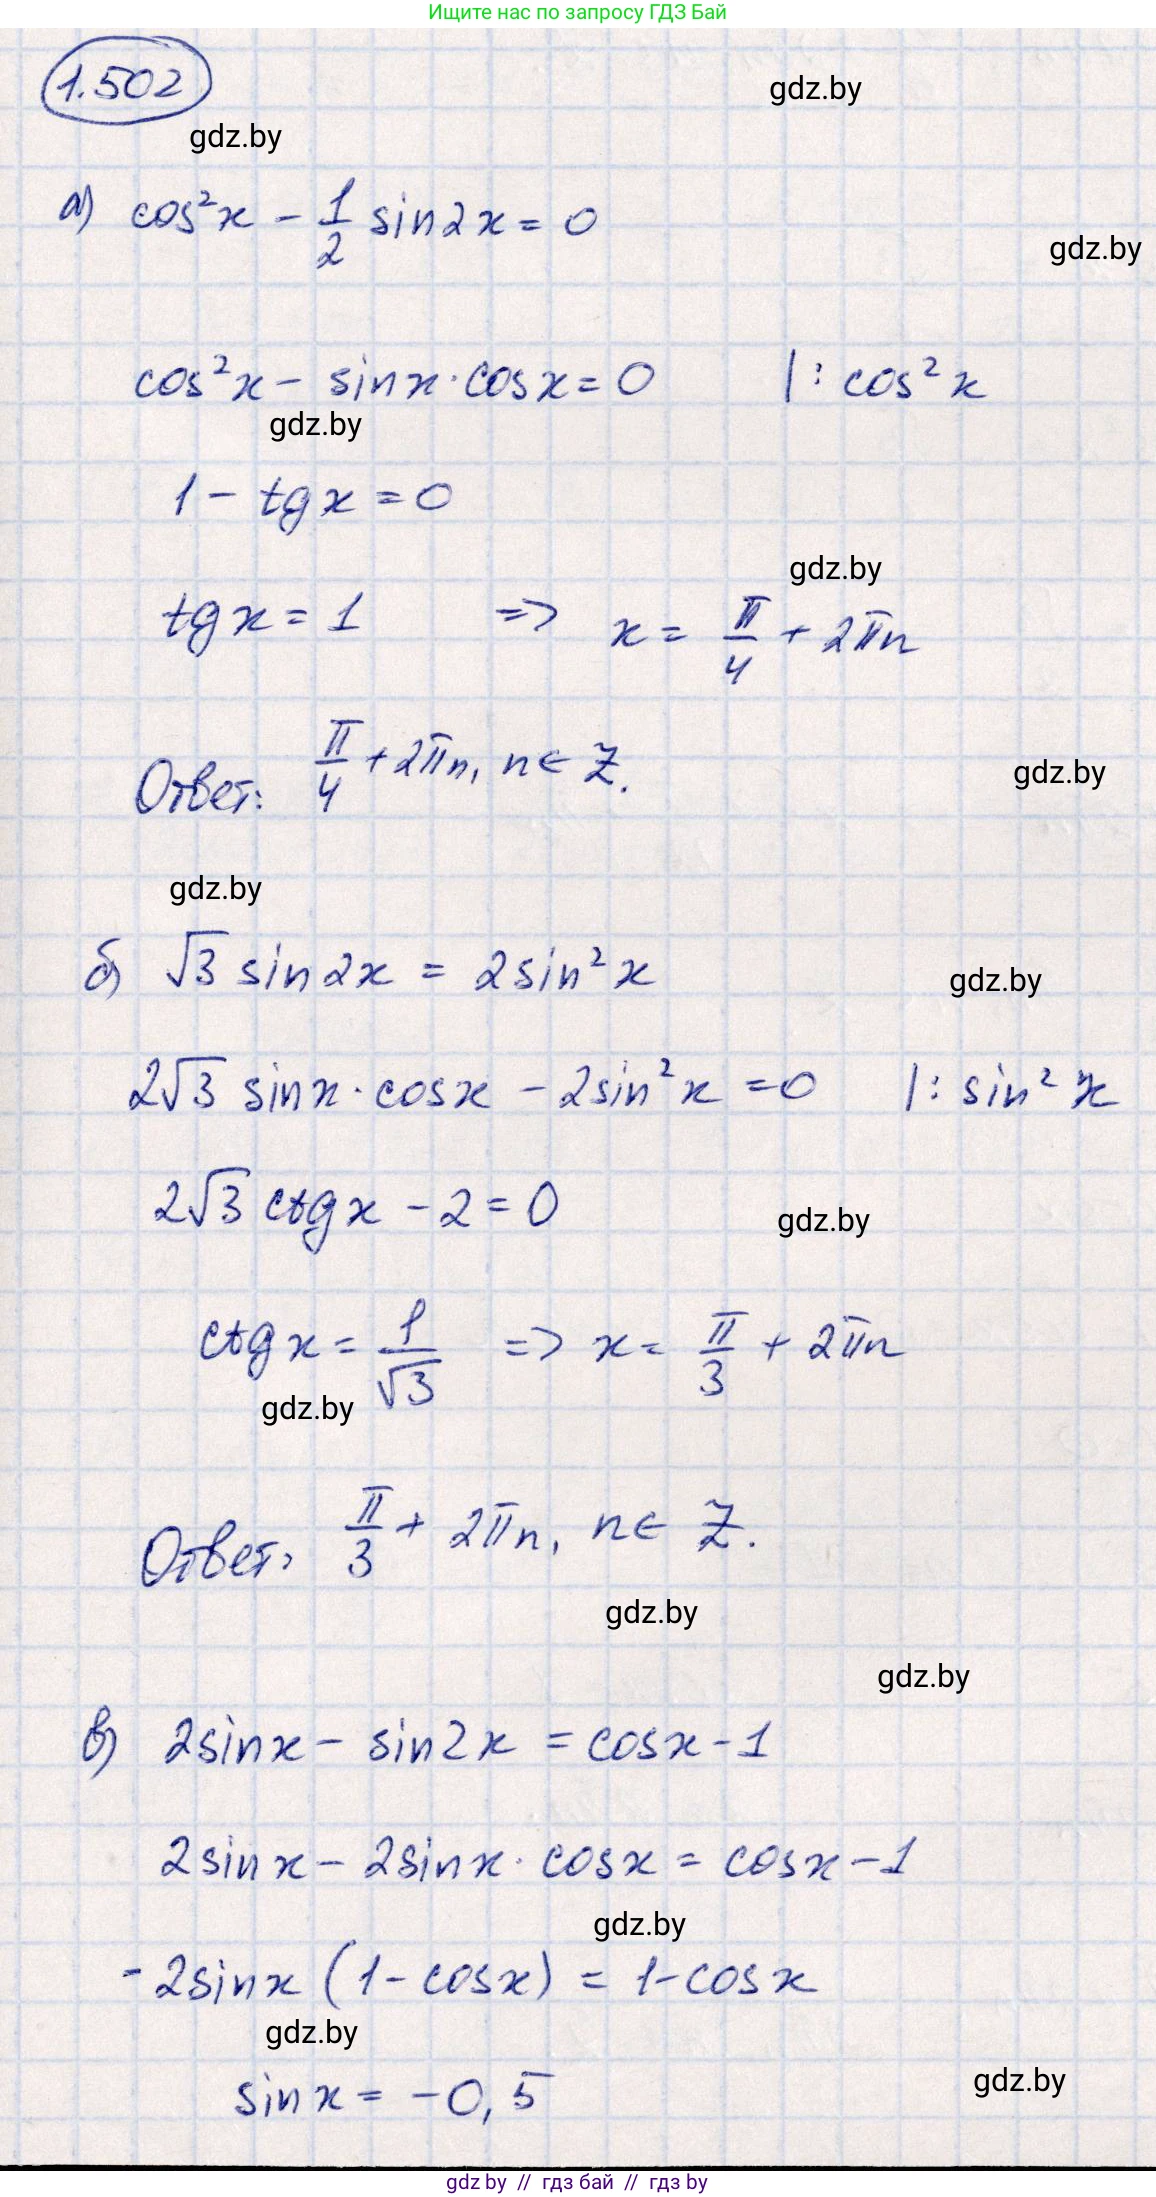 Ищите нас по запросу ГДЗ Бай
1.502
gdz.by
gdz.by
а) cos²x - 1/2 sin2x = 0
gdz.by
cos²x - sinx · cosx = 0 |: cos²x
gdz.by
1 - tgx = 0
gdz.by
tgx = 1 => x = π/4 + 2πn
Ответ: π/4 + 2πn, n ∈ Z.
gdz.by
gdz.by
б) √3 sin2x = 2sin²x
gdz.by
2√3 sinx · cosx - 2sin²x = 0 |: sin²x
2√3 ctgx - 2 = 0
gdz.by
ctgx = 1/√3 => x = π/3 + 2πn
gdz.by
Ответ: π/3 + 2πn, n ∈ Z.
gdz.by
gdz.by
в) 2sinx - sin2x = cosx - 1
2sinx - 2sinx · cosx = cosx - 1
gdz.by
-2sinx (1 - cosx) = 1 - cosx
gdz.by
gdz.by
sinx = -0,5
gdz by // гдз бай // гдз by